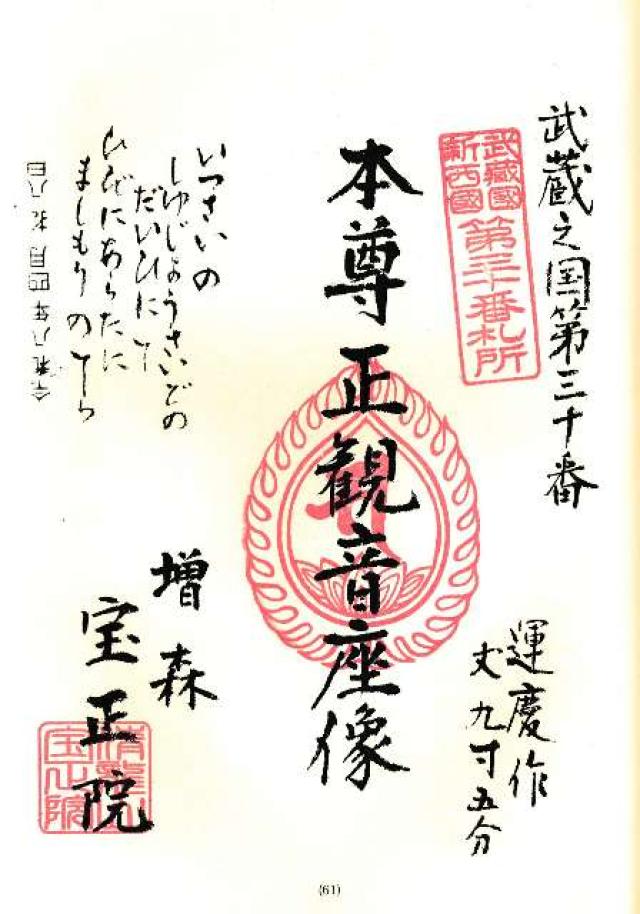 武蔵之国第三十番
武蔵國
新西國
第三十番札所
運慶作
丈九寸五分
本尊正観音座像
いつさいの
しゆじようさいどの
だいひにて
ひびにあらたに
ましもりのてら
令和八年四月 八日
増森
宝正院
宝正院
(61)